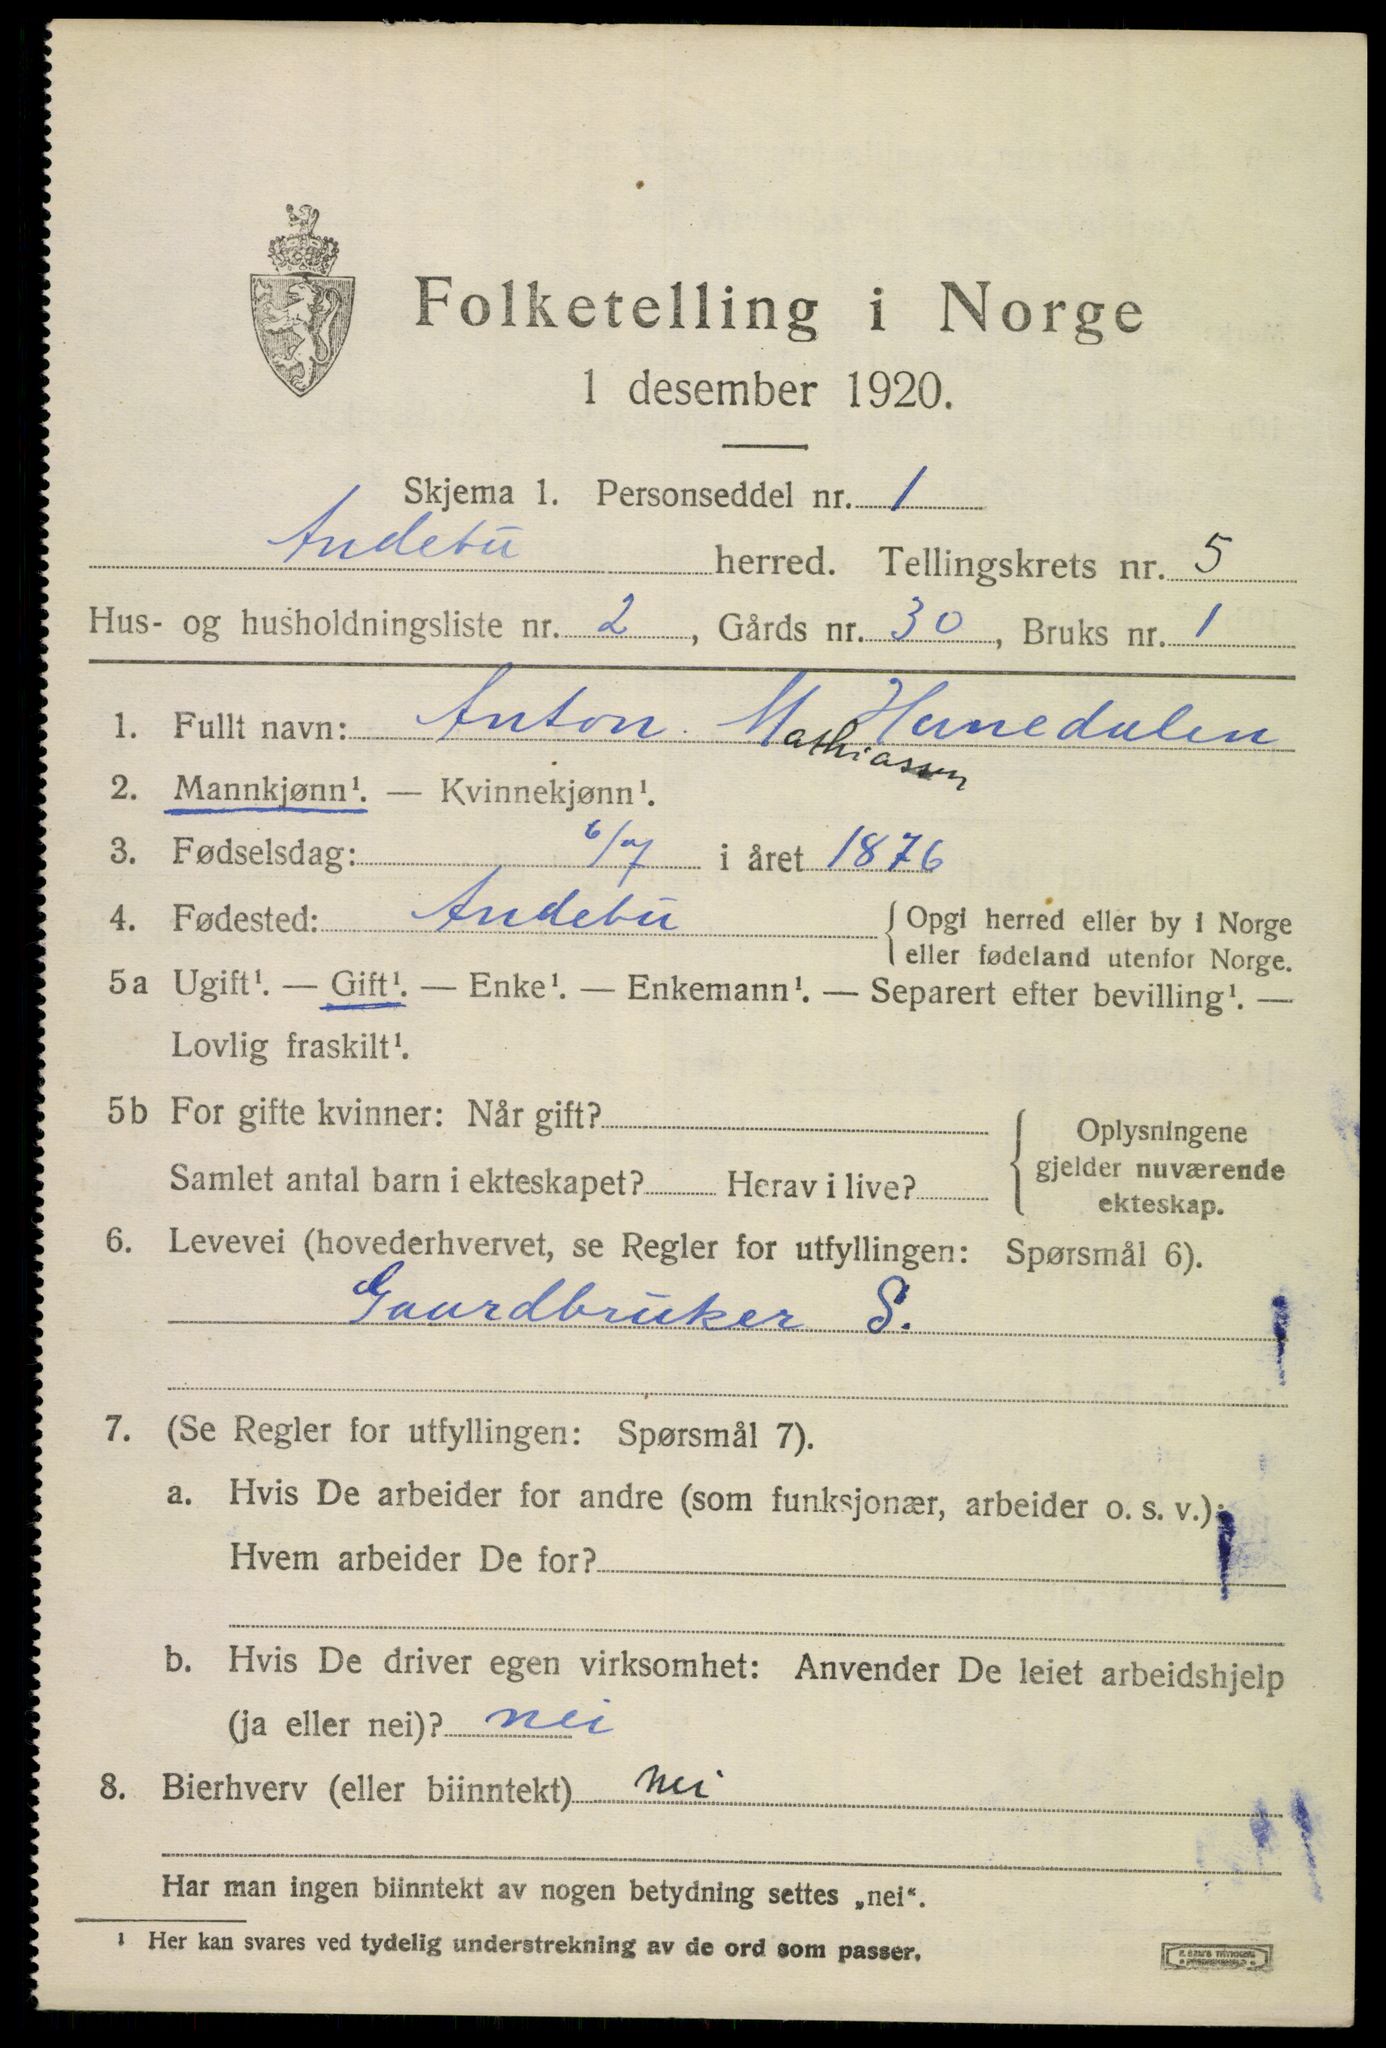 Folketelling i Norge
1 desember 1920.
Skjema 1. Personseddel nr. 1
Andebu herred. Tellingskrets nr. 5
Hus- og husholdningsliste nr. 2, Gårds nr. 30, Bruks nr. 1
1. Fullt navn: Anton Mathiassen
2. Mannkjønn¹. — Kvinnekjønn¹.
3. Fødselsdag: 6/7 i året 1876
4. Fødested: Andebu {Opgi herred eller by i Norge
eller fødeland utenfor Norge.
5a Ugift¹. — Gift¹. — Enke¹. — Enkemann¹. — Separert efter bevilling¹. —
Lovlig fraskilt¹.
5b For gifte kvinner: Når gift?
Samlet antal barn i ekteskapet? Herav i live?
Oplysningene
gjelder nuværende
ekteskap.
6. Levevei (hovederhvervet, se Regler for utfyllingen: Spørsmål 6).
Gaardbruker S.
7. (Se Regler for utfyllingen: Spørsmål 7).
a. Hvis De arbeider for andre (som funksjonær, arbeider o. s. v.):
Hvem arbeider De for?
b. Hvis De driver egen virksomhet: Anvender De leiet arbeidshjelp
(ja eller nei)? nei
8. Bierhverv (eller biinntekt) nei
Har man ingen biinntekt av nogen betydning settes „nei“.
¹ Her kan svares ved tydelig understrekning av de ord som passer.